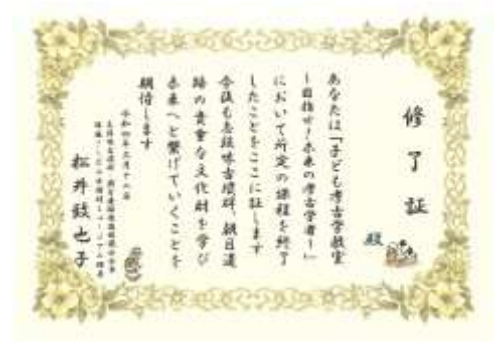 修了証
殿
あなたは「子ども考古学教室
～目指せ！未来の考古学者～」
において所定の課程を終了
したことをここに証します
今後も志段味古墳群、朝日遺
跡の貴重な文化財を学び
未来へと繋げていくことを
期待します